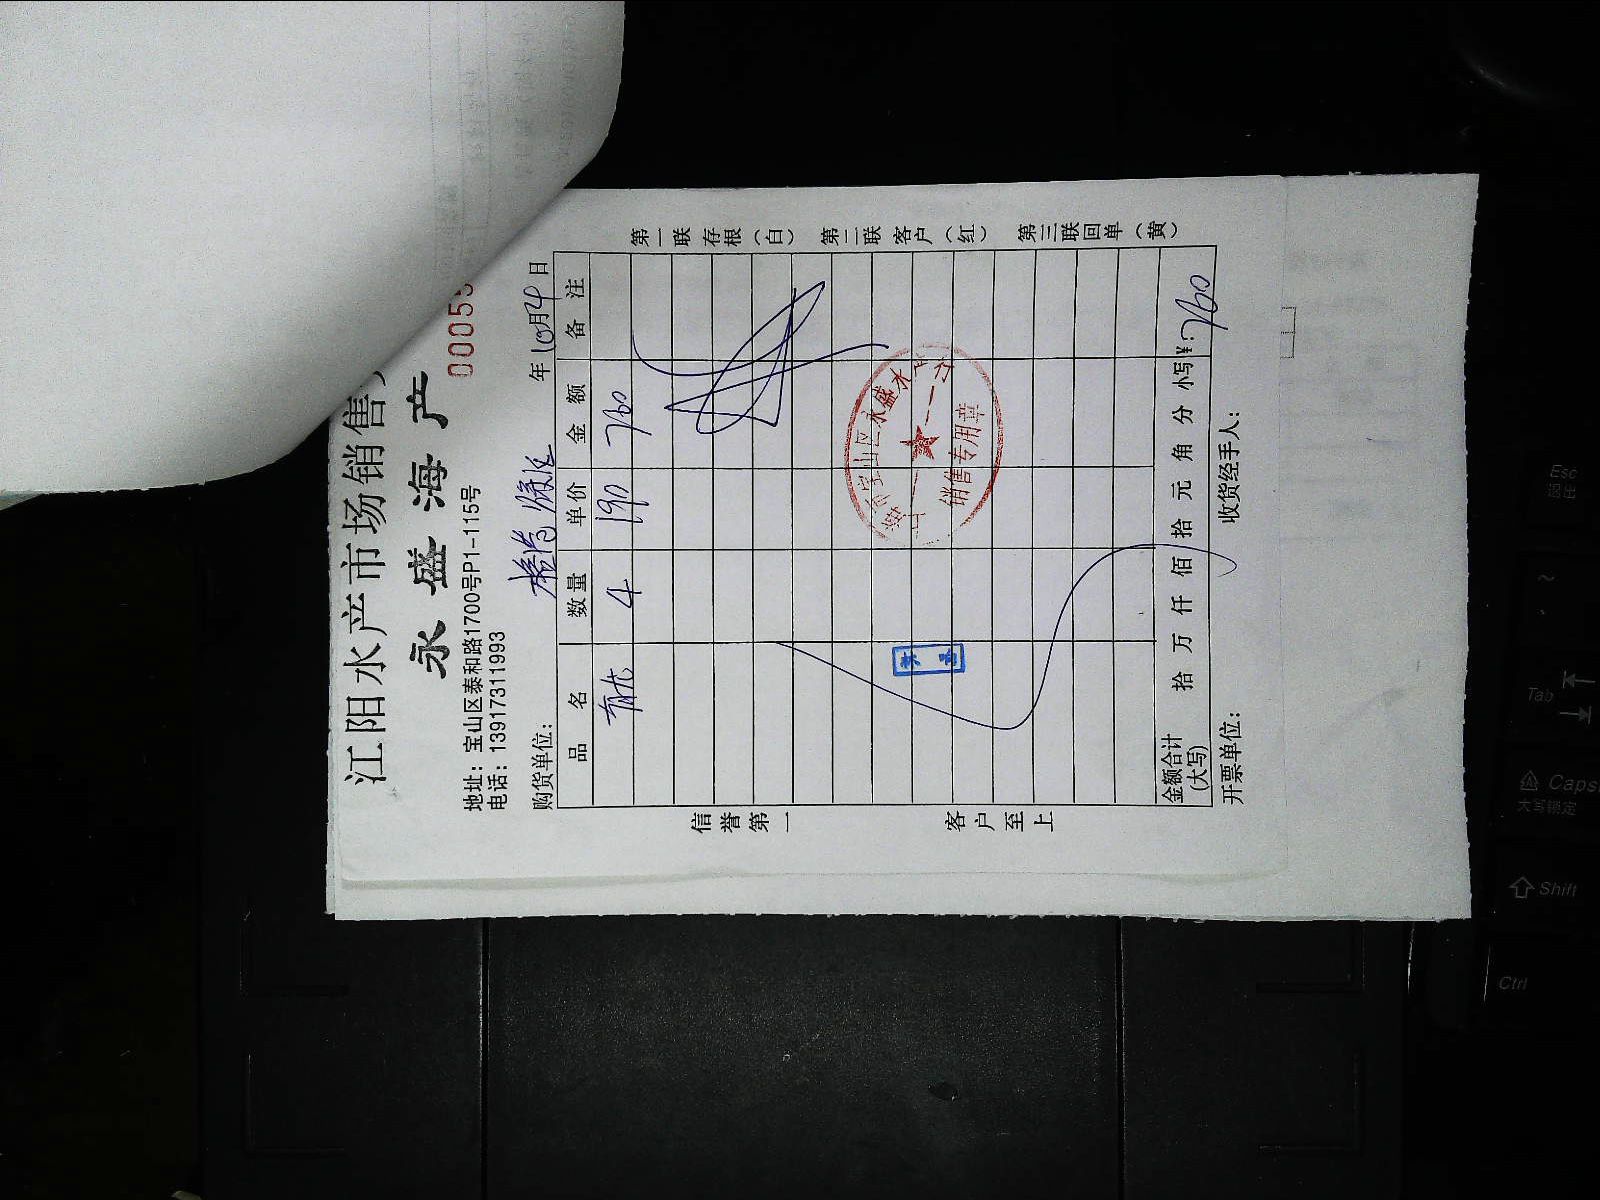 江阳水产市场销售
永盛海产
0005
地址：宝山区泰和路1700号P1-115号
电话：13917311993
购货单位：
年10月4日
品 名 数量 单价 金额 备 注
4 190 760
第一联存根（白） 第二联客户（红） 第三联回单（黄）
信誉第一 客户至上
宝山区永盛水
销售专用章
金额合计 拾 万 仟 佰 拾 元 角 分 小写¥：760
(大写)
开票单位： 收货经手人：
Esc
Tab
Caps
大写锁定
Shift
Ctrl